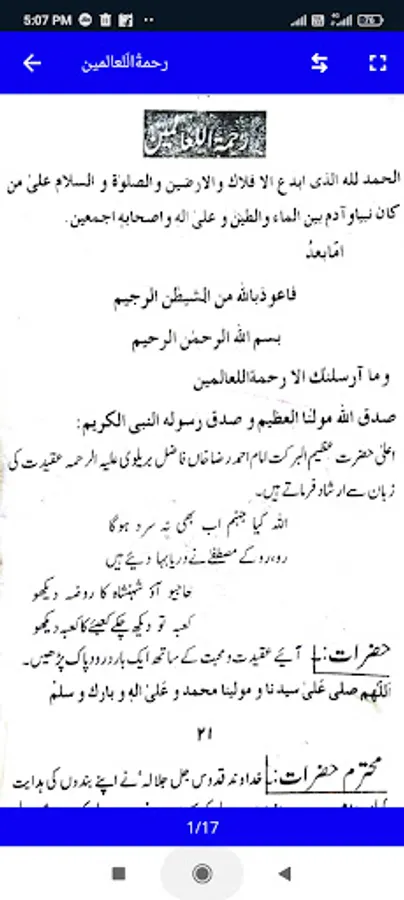 5:07 PM
76
رحمۃاللعالمین
رحمۃاللعالمین
الحمد لله الذى ابدع الا فلاک والارضین والصلوٰة و السلام علیٰ من
کان نبیاو آدم بین الماء والطین و علیٰ اله واصحابهٖ اجمعین.
امّا بعدُ
فاعو ذبالله من الشیطٰن الرجیم
بسم الله الرحمٰن الرحیم
و ما آرسلنک الا رحمةاللعالمین
صدق الله مولٰنا العظیم و صدق رسوله النبی الکریم:
اعلیٰ حضرت عظیم البرکت امام احمد رضا خاں فاضل بریلوی علیہ الرحمہ عقیدت کی
زبان سے ارشاد فرماتے ہیں۔
اللہ کیا جہنم اب بھی نہ سرد ہوگا
رو، رو کے مصطفےٰ نے دریا بہا دیئے ہیں
حاجیو آؤ شہنشاہ کا روضہ دیکھو
کعبہ تو دیکھ چکے کعبے کا کعبہ دیکھو
حضرات:۔ آیئے عقیدت و محبت کے ساتھ ایک بار درود پاک پڑھیں۔
اللّٰهم صلی علیٰ سیدنا و مولینا محمد و علیٰ اله و بارک و سلم
٢١
محترم حضرات:۔ خداوند قدوس جل جلالہ نے اپنے بندوں کی ہدایت
1/17